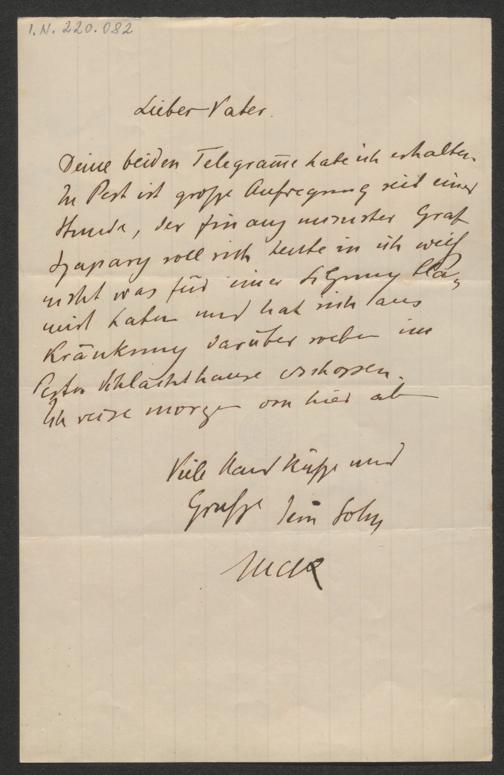 I.N. 220.082
Lieber Vater.
Deine beiden Telegrame habe ich erhalten.
In Pest ist große Aufregung seit einer
Stunde, der Finanz minister Graf
Szapary soll sich heute in ich weiß
nicht was für einer Sitzung bla,
mirt haben und hat sich aus
Kränkung darüber soeben im
Pester Schlachthause erschossen.
Ich reise morgen von hier ab
Viele Hand Küsse und
Grüße Dein Sohn